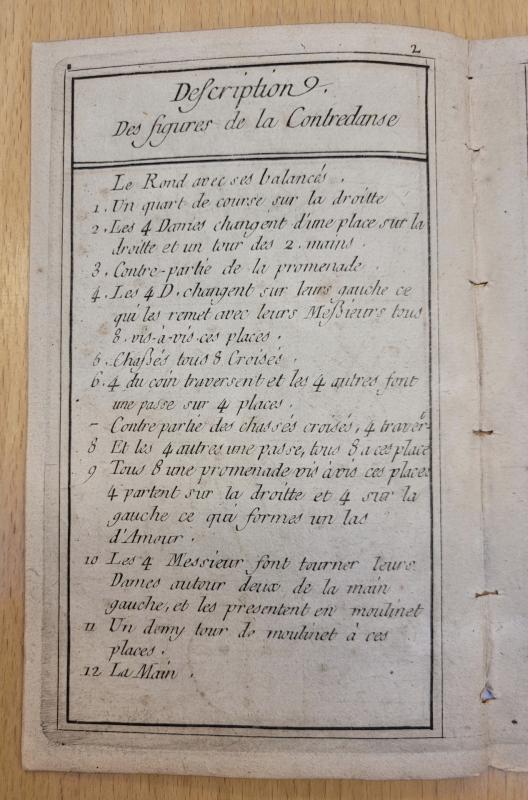 2
Description.
Des figures de la Contredanse
Le Rond avec ses balancés.
1. Un quart de course sur la droitte
2. Les 4 Dames changent d'une place sur la
droitte et un tour des 2. mains.
3. Contre-partie de la promenade.
4. Les 4 D. changent sur leurs gauche ce
qui les remet avec leurs Messieurs tous
8. vis-à-vis ces places.
6. Chassés tous 8 Croisés.
6. 4 du coin traversent et les 4 autres font
une passe sur 4 places.
- Contre partie des chassés croisés, 4 traver.t
8 Et les 4 autres une passe, tous 8 a ces place
9 Tous 8 une promenade vis à vis ces places
4 partent sur la droitte et 4 sur la
gauche ce qui formes un las
d'Amour.
10 Les 4 Messieur font tourner leurs
Dames autour deux de la main
gauche, et les presentent en moulinet
11 Un demy tour de moulinet à ces
places.
12 La Main.